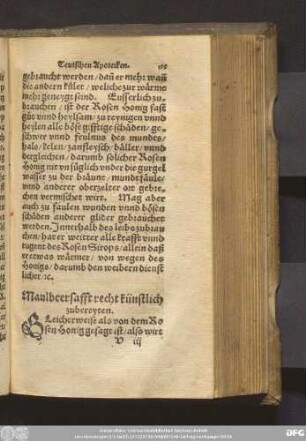 Teutschen Apotecken.
gebraucht werden / dañ er mehr wañ
die andern küler / weliche zur wärme
mehr geneygt seind. Eusserlich zu
brauchen / ist der Rosen Honig fast
gůt vnnd heylsam / zu reynigen vnnd
heylen alle böse gifftige schäden / ge-
schwer vnnd feulnus des mundes /
hals / kelen / zanfleysch / bäller / vnnd
dergleichen / darumb solicher Rosen
Honig nit vnfüglich vnder die gurgel
wasser zu der bäune / mundtfäule /
vnnd anderer oberzelter ort gebre-
chen vermischet wirt. Mag aber
auch zu faulen wunden vnnd bösen
schäden anderer glider gebrauchet
werden. Innerhalb des leibs zubrau
chen / hat er weitter alle krafft vnnd
tugent des Rosen Sirops / allein daß
er etwas wärmer / von wegen des
Honigs / darumb den weibern dienst
licher / ꝛc.
Maulbeersafft recht künstlich
zubereyten.
Gleicherweise als von dem Ro
sen Honig gesagt ist / also wirt
V iij
DFG